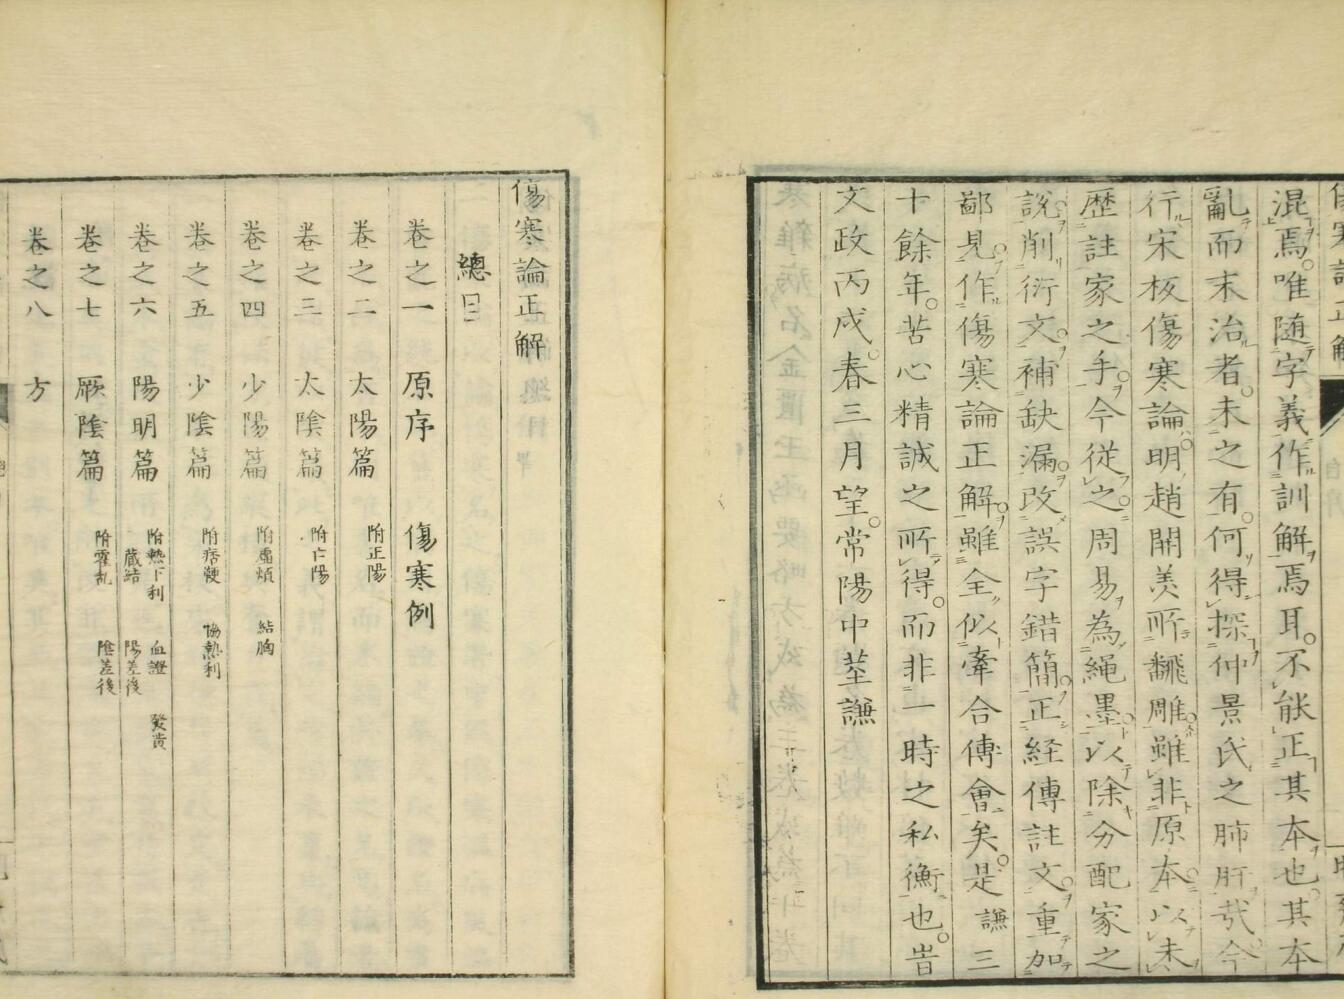 混焉。唯随字義作訓解焉耳。不能正其本也。其本
亂而末治者。未之有。何得探仲景氏之肺肝哉。今
行宋板傷寒論。明趙開美所飜雕。雖非原本。以未
歴註家之手。今從之。周易為繩墨。以除分配家之
説。削衍文。補缺漏。改誤字錯簡。正経傳註文。重加
鄙見。作傷寒論正解。雖全似牽合傅會矣。是謙三
十餘年。苦心精誠之所得。而非一時之私衡也。旹
文政丙戌。春三月望。常陽中茎謙
傷寒論正解
總目
卷之一 原序 傷寒例
卷之二 太陽篇 附正陽
卷之三 太陰篇 附亡陽
卷之四 少陽篇 附虛煩 結胸
卷之五 少陰篇 附痞鞕 協熱利
卷之六 陽明篇 附熱下利 血證 發黄 蔵結 陽差後
卷之七 厥陰篇 附霍乱 陰差後
卷之八 方